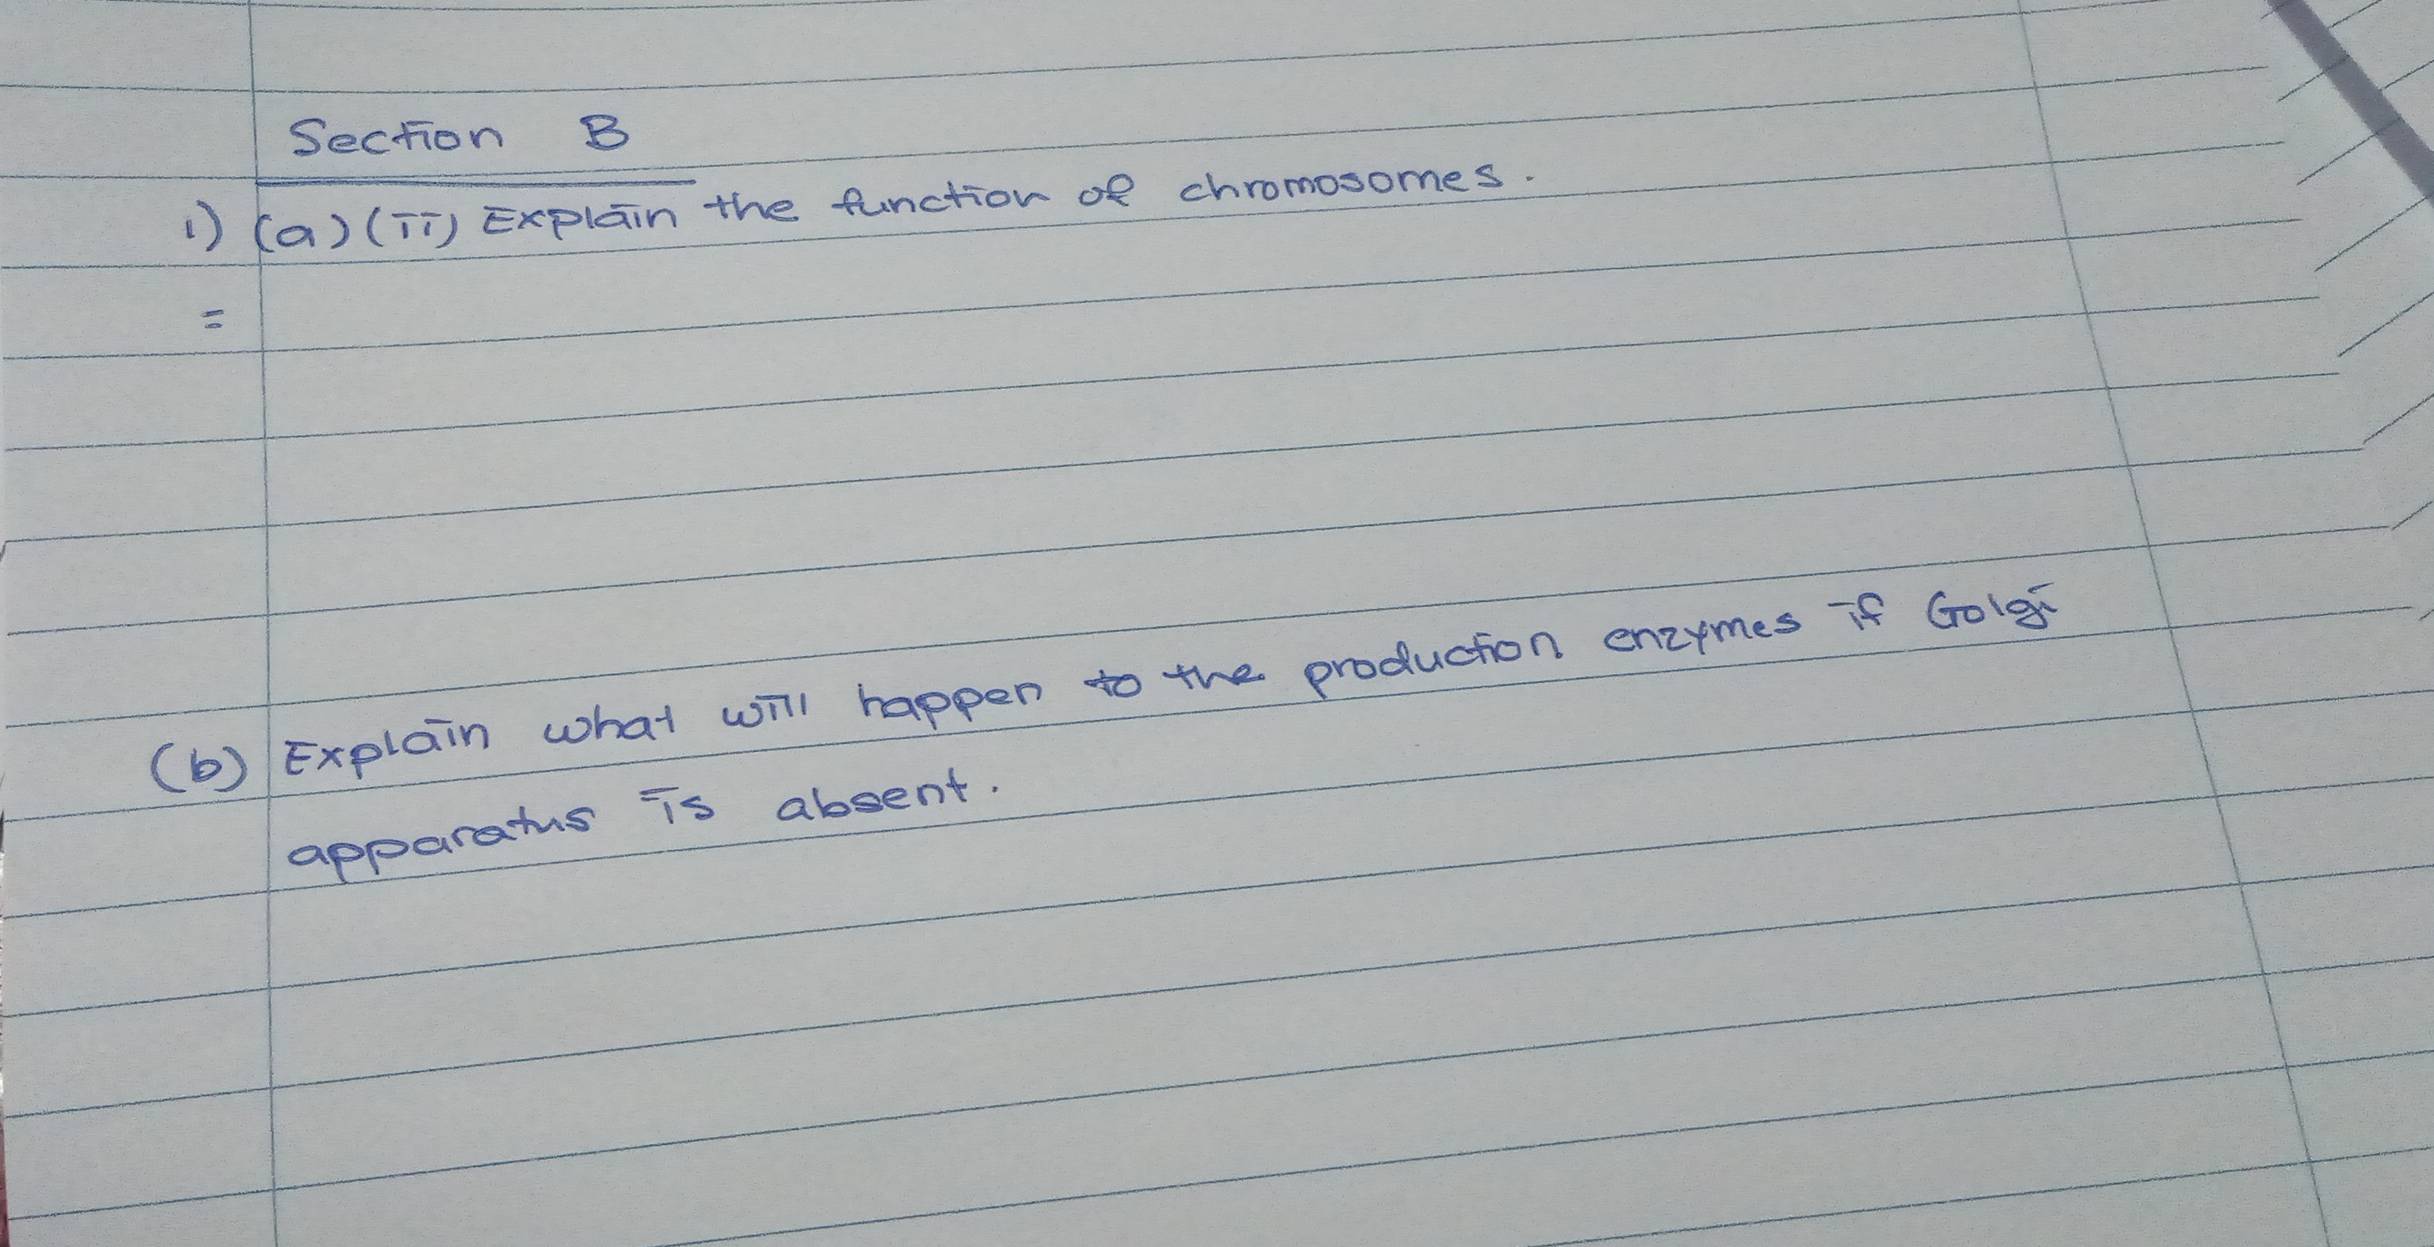 Section B
1) (a) (ii) Explain the function of chromosomes.
=
(b) Explain what will happen to the production enzymes if Golgi
apparatus is absent.